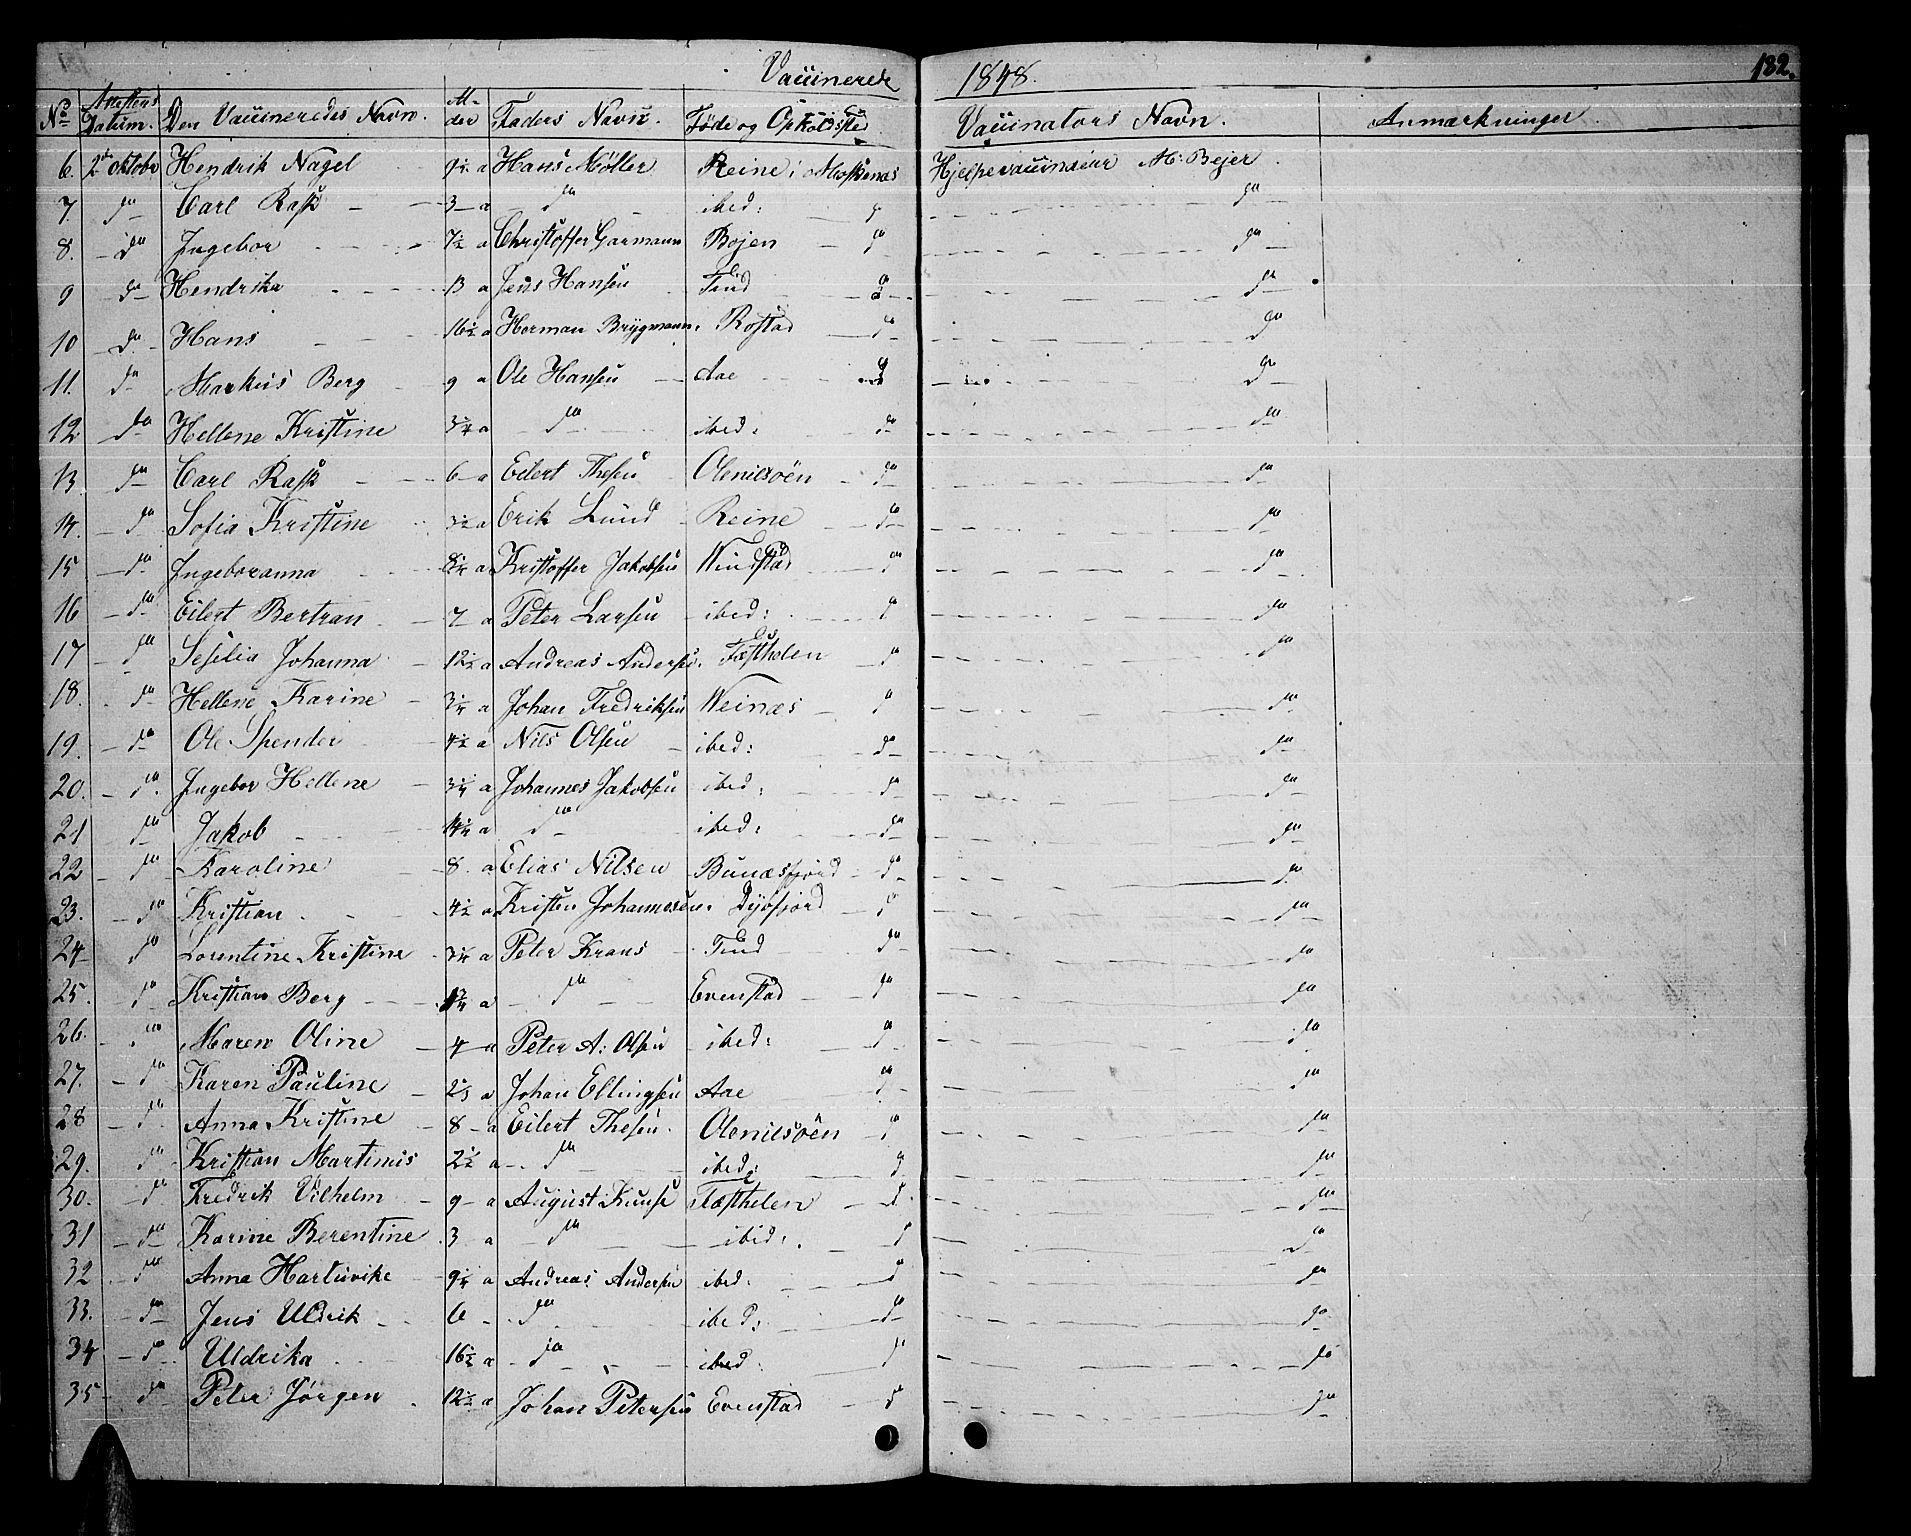 Vaccinerede 1848. 182.
No Attestens Datum. Den Vaccineredes Navn. Alder Faders Navn. Føde og Opholdssted Vaccinators Navn. Anmærkninger.
6. 2den Oktobr Hendrik Nagel a Hans Møller Reine i Moskenæs Hjelpevaccinateur M. Bejer.
7 do Carl Rask 3 a do ibed: do do
8. do Ingebor 7½ a Christoffer Garmann Bojen do do
9 do Hendrika 13 a Jens Hansen Tind do do
10 do Hans 16½ a Herman Brygmann. Rostad do do
11. do Markus Berg 9 a Ole Hansen Aae do do
12 do Hellene Kristine a do ibed: do do
13 do Carl Rask 6 a Eilert Thesen Olenilsöen do do
14. do Sofia Kristine a Erik Lund Reine do do
15 do Ingeboranna a Kristoffer Jakobsen Windstad do do
16 do Eilert Bertran 7 a Peter Larsen ibed: do do
17 do Seselia Johanna 12½ a Andreas Andersen. Fæsthelen do do
18. do Hellene Karine a Johan Fredriksen Weinæs do do
19. do Ole Spender 4½ a Nils Olsen ibed: do do
20. do Ingebor Hellene a Johannes Jakobsen ibed: do do
21 do Jakob a do ibed: do do
22 do Karoline 8. a Elias Nilsen Bunæsfjord do do
23. do Kristian 4½ a Kristen Johannesen. Dybfjord do do
24 do Lorentine Kristine a Peter Krans Tind do do
25. do Kristian Berg a do Evenstad do do
26. do Maren Oline 4 a Peter A: Olsen ibed: do do
27. do Karen Pauline a Johan Ellingsen Aae do do
28 do Anna Kristine 8 a Eilert Thesen. Olenilsöen do do
29. do Kristian Martinus 2½ a do ibed: do do
30. do Fredrik Vilhelm 9 a August Kunse Fæsthelen do do
31 do Karine Berentine 3 a do ibid: do do
32 do Anna Hartuvike a Andreas Andersen ibed: do do
33. do Jens Uldrik 6 do ibed: do do
34 do Uldrika 16½ a do ibed: do do
35 do Peter Jørgen 12½ a Johan Petersen Evenstad do do